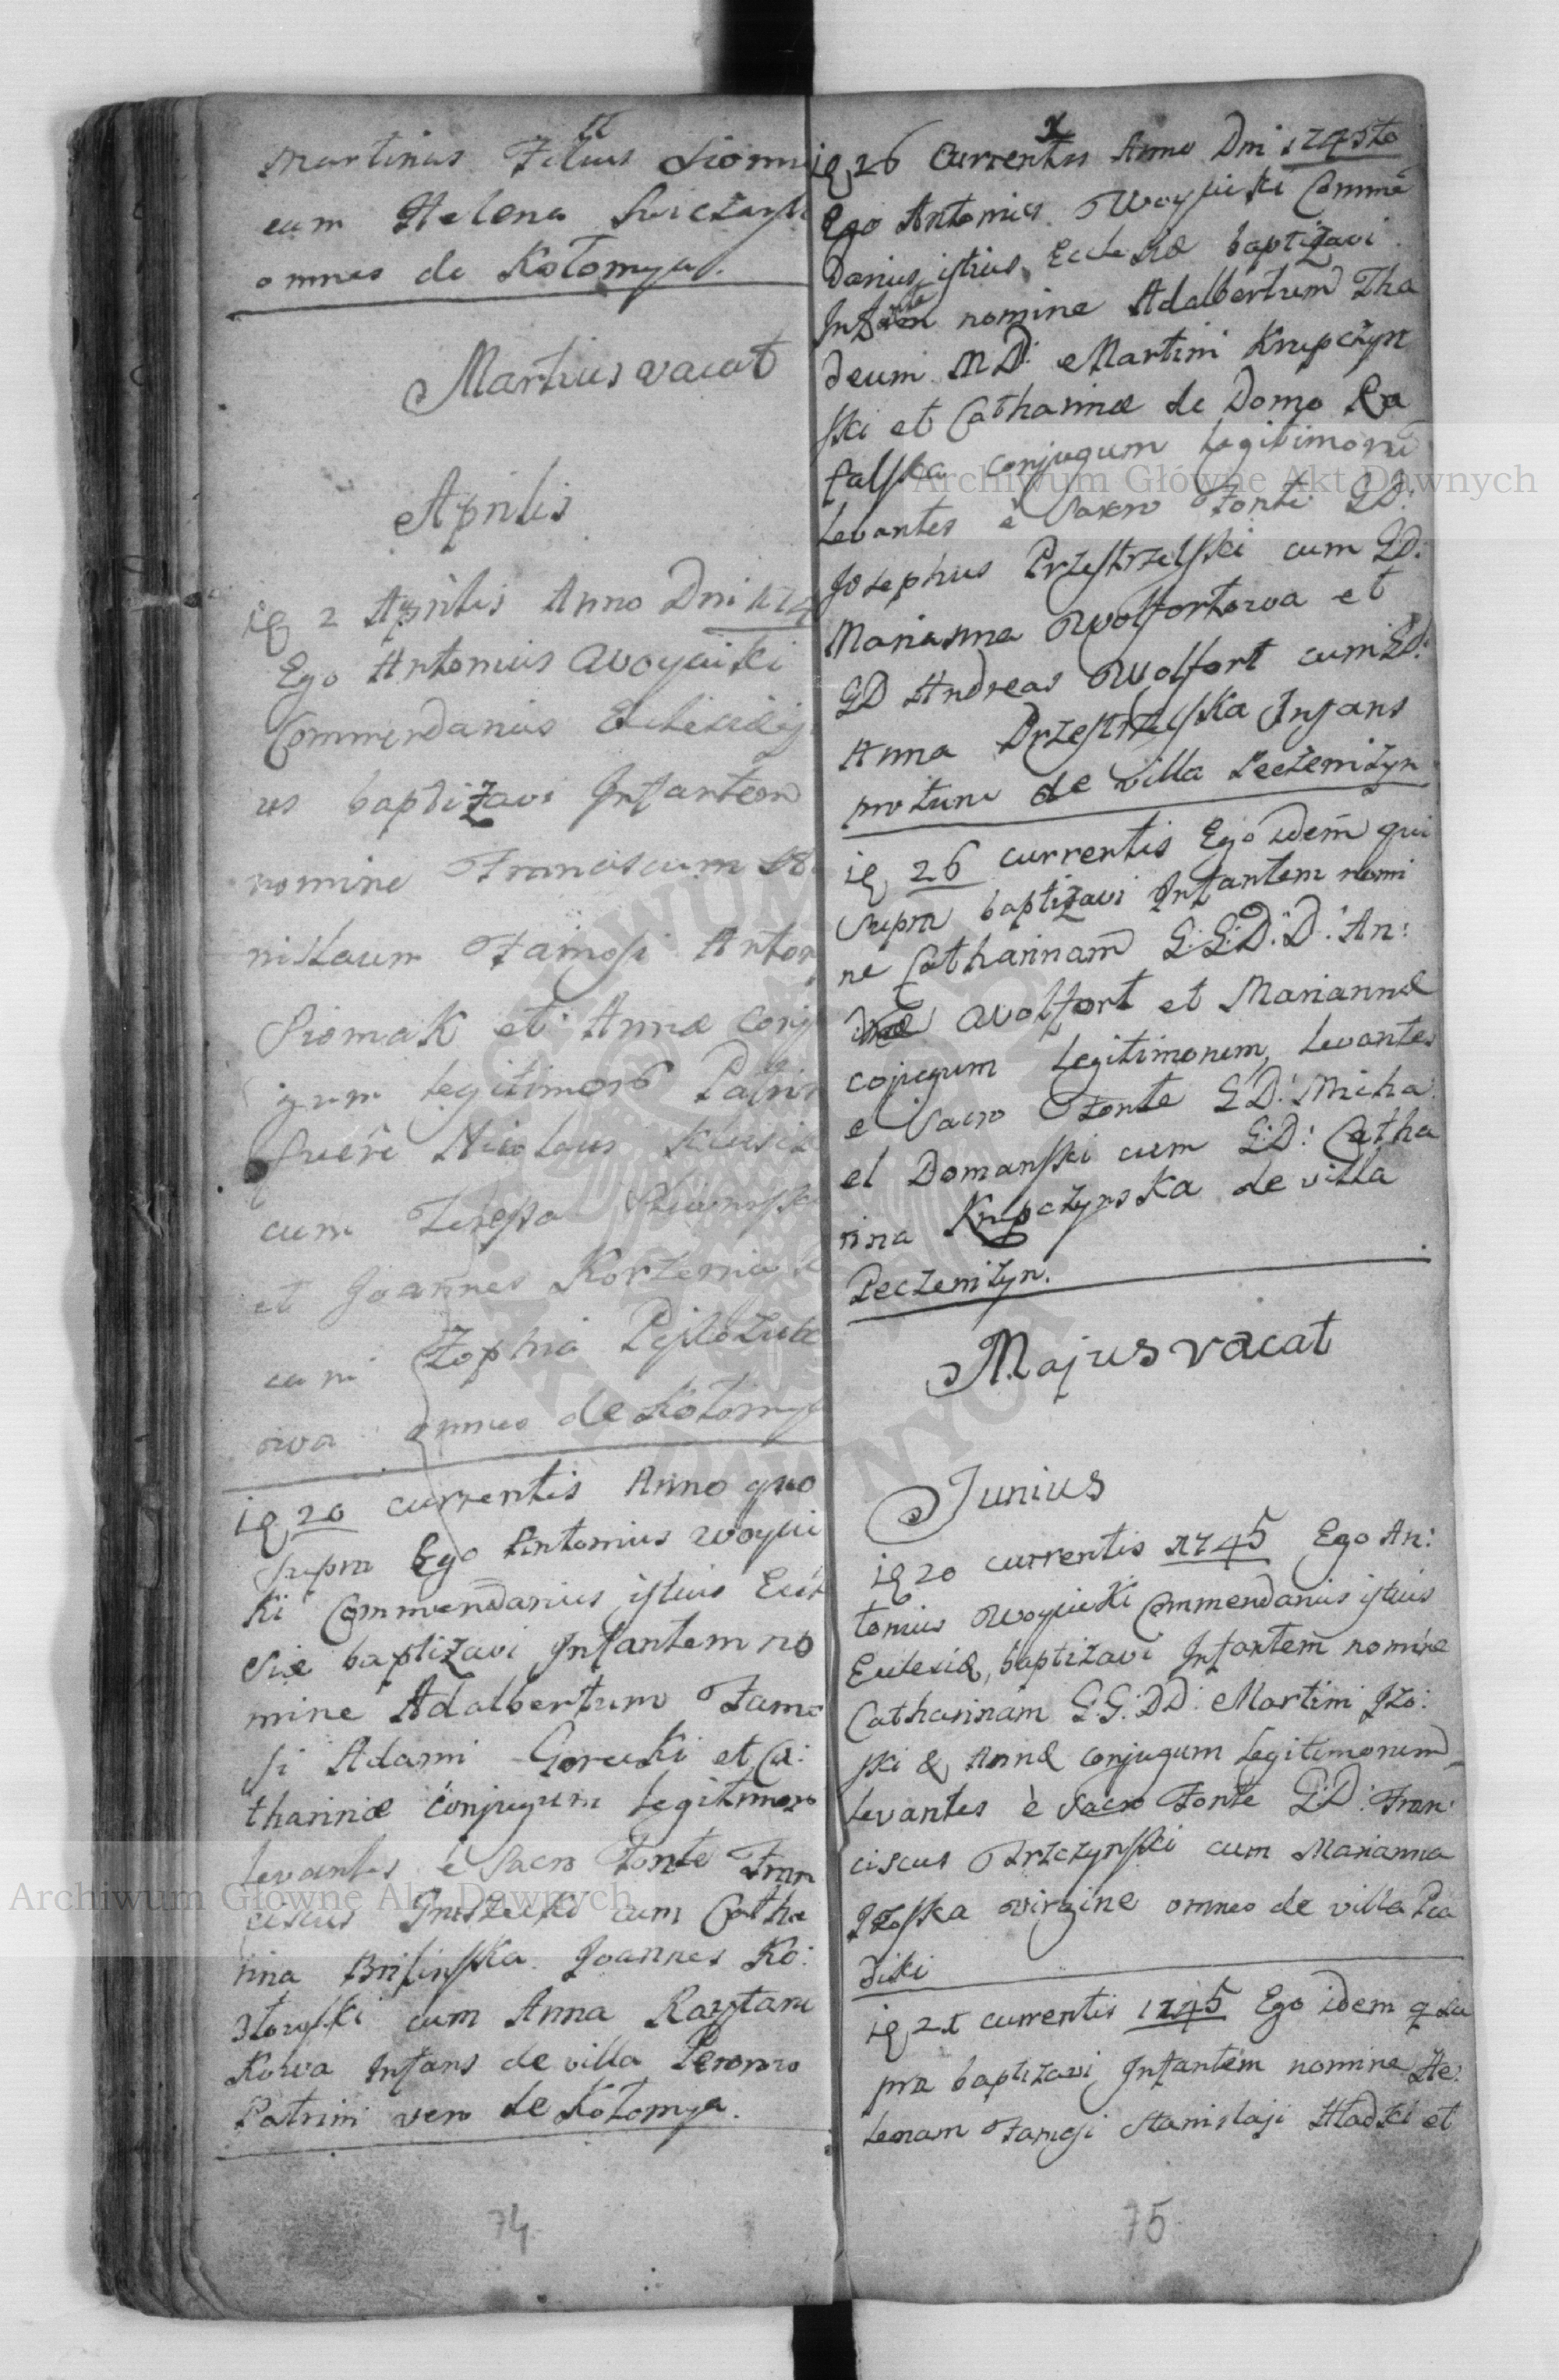 Martinus Filius
cum Helena
omnes de Kołomya.
Martius vacat
Aprilis
2 Aprilis Anno Dni 174
Ego Antonius Woycicki
Commendarius Ecclesiæ
us baptizavi Infantem
nomine Franciscum
nislaum Famosi Anton
Siomak et Annæ conj
gum legitimor Patrin
fuere Nicolaus
cum Teressa
et Joannes
cum Zophia
owa omnes de Kołomy
20 currentis Anno quo
supra Ego Antonius Woyci
ki Commendarius istius Eccl
siæ baptizavi Infantem no
mine Adalbertum Famo
si Adami Gorecki et Ca:
tharinæ conjugum legitimor
levantes è Sacro Fonte Fran
ciscus cum Catha
rina Brilinska. Joannes Ko:
złowski cum Anna
kowa Infans de villa
Patrini vero de Kołomya.
74
26 Currentis Anno Dni 1745to
Ego Antonius Woycicki Comme
darius istius Ecclesiæ baptizavi
nomine Adalbertum Tha
deum MD: Martini Krupczyn
ski et Catharinæ de Domo Ra
falska conjugum legitimorum
Levantes è Sacro Fonte GD:
Josephus Przestrzelski cum GD:
Marianna Wolfortowa et
GD Andreas Wolfort cum GD:
Anna Przestrzelska Infans
de villa Peczeniżyn
26 currentis Ego idem qui
supra baptizavi Infantem nomi
ne Catharinam G:G:D:D: An:
Wolfort et Mariannæ
cojugum legitimorum, levantes
e Sacro Fonte GD: Micha
el Domanski cum G:D: Catha
rina Krupczynska de villa
Peczeniżyn.
Majus vacat
Junius
20 currentis 1745 Ego An:
tonius Woycicki Commendarius istius
Ecclesiæ, baptizavi Infantem nomine
Catharinam G.G:DD: Martini Jzo:
ski & Annæ conjugum legitimorum
levantes è Sacro Fonte GD: Fran:
ciscus Trzczynski cum Marianna
Jzoska virgine omnes de villa Pia
diki
21 currentis 1745 Ego idem q su
pra baptizavi Infantem nomine He:
lenam Famosi Stanislaji Hladki et
75
Archiwum Główne Akt Dawnych
Archiwum Główne Akt Dawnych